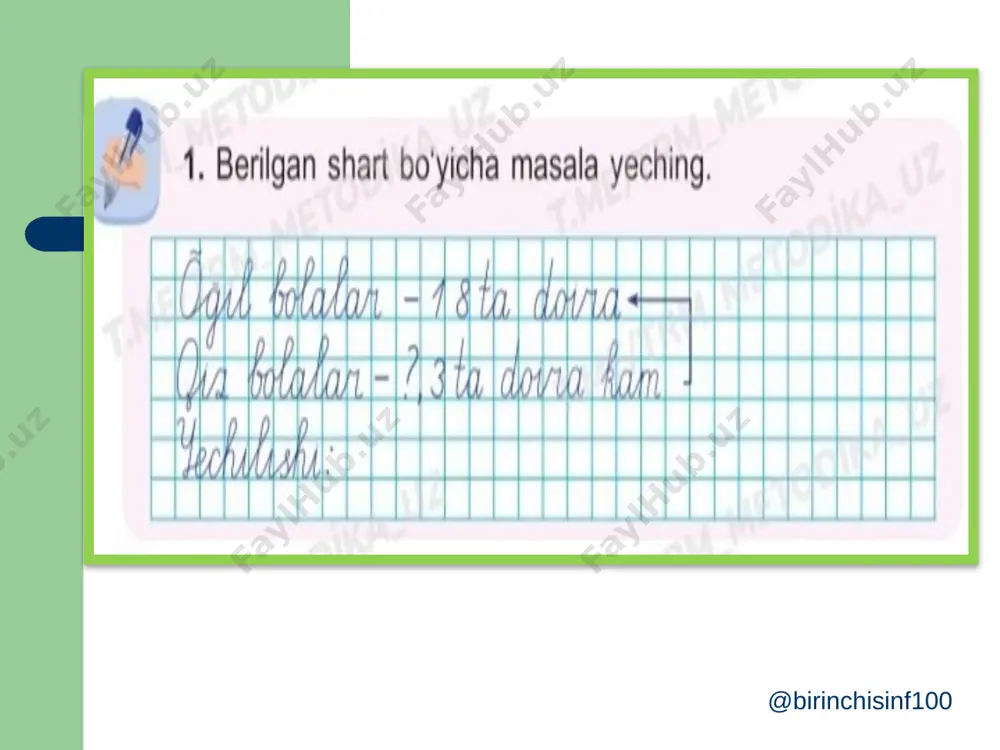 1. Berilgan shart bo'yicha masala yeching.
Õg'il bolalar - 18 ta doira
Qiz bolalar - ?, 3 ta doira kam
Yechilishi:
@birinchisinf100
FaylHub.uz
T.ME/TRM_METODİKA_UZ